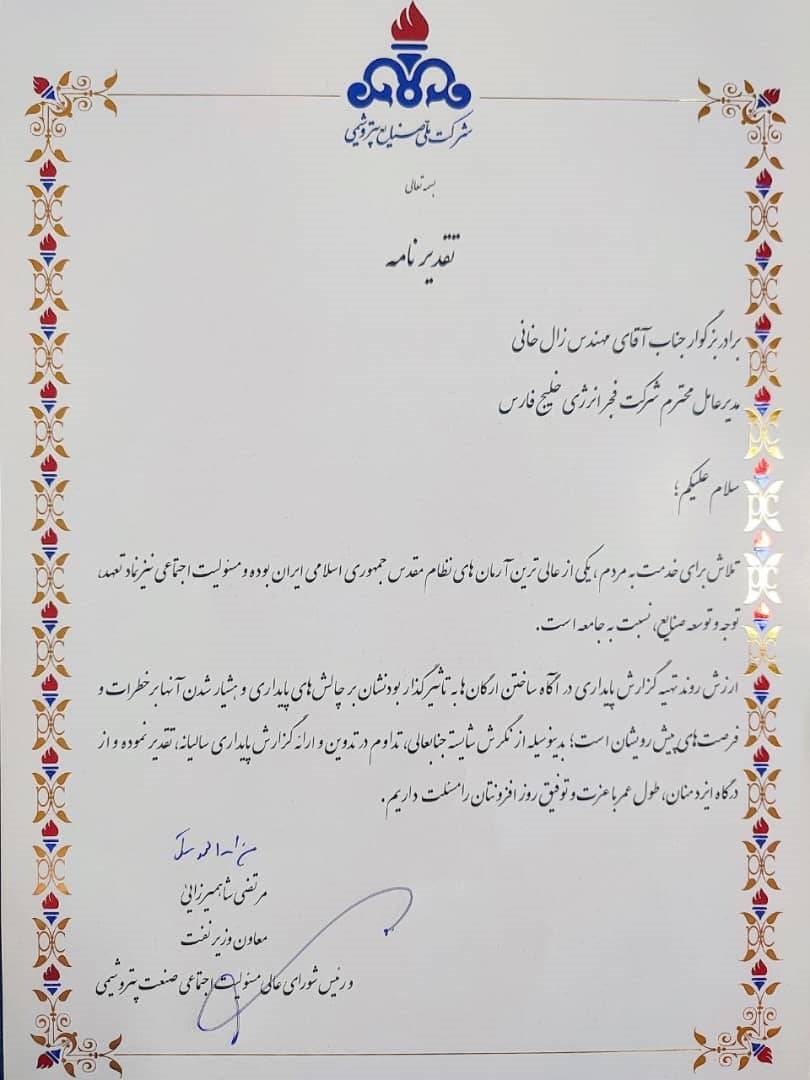 شرکت ملی صنایع پتروشیمی
بسمه تعالی
تقدیر نامه
برادر بزرگوار جناب آقای مهندس زال خانی
مدیرعامل محترم شرکت فجر انرژی خلیج فارس
سلام علیکم؛
تلاش برای خدمت به مردم، یکی از عالی ترین آرمان های نظام مقدس جمهوری اسلامی ایران بوده و مسئولیت اجتماعی نیز نماد تعهد،
توجه و توسعه صنایع، نسبت به جامعه است.
ارزش روند تهیه گزارش پایداری در آگاه ساختن ارگان ها به تاثیرگذار بودنشان بر چالش های پایداری و هشیار شدن آنها بر خطرات و
فرصت های پیش رویشان است؛ بدینوسیله از نگرش شایسته جنابعالی، تداوم در تدوین و ارائه گزارش پایداری سالیانه، تقدیر نموده و از
درگاه ایزد منان، طول عمر با عزت و توفیق روز افزونتان را مسئلت داریم.
مرتضی شاهمیرزایی
معاون وزیر نفت
و رئیس شورای عالی مسئولیت اجتماعی صنعت پتروشیمی